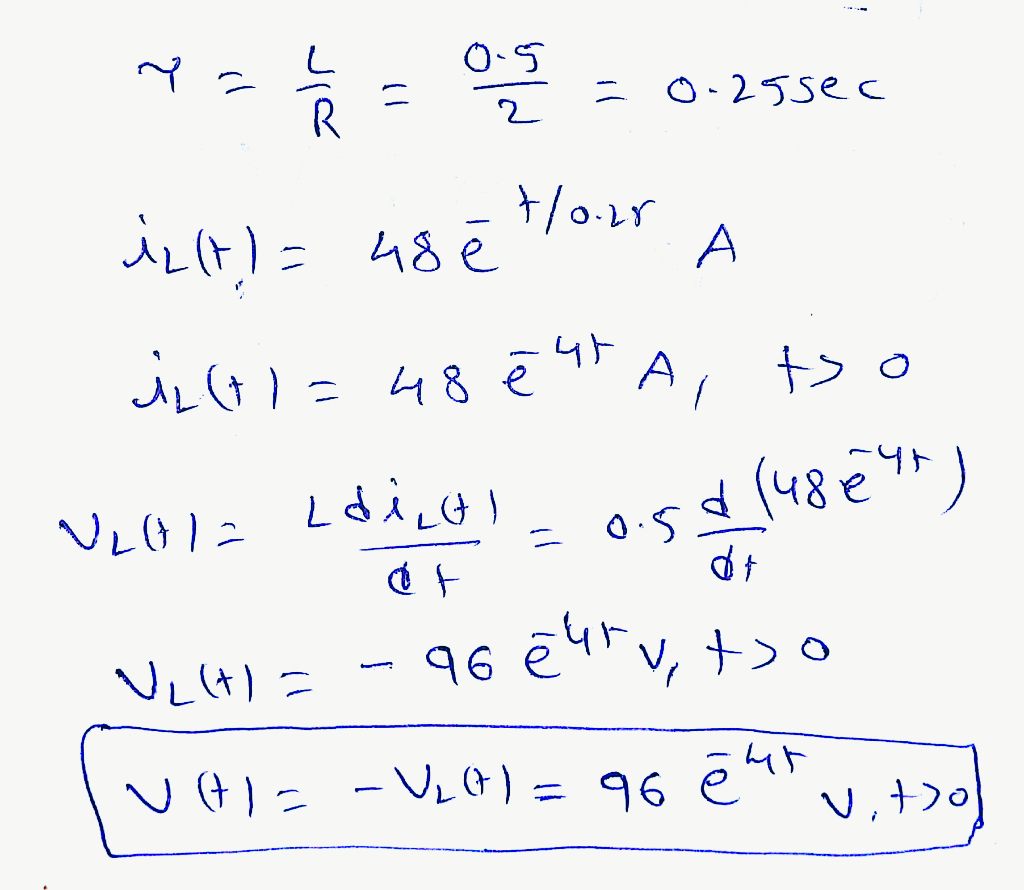 τ = L/R = 0.5/2 = 0.25sec
i_L(t) = 48 e^-t/0.25 A
i_L(t) = 48 e^-4t A, t>0
V_L(t) = L di_L(t)/dt = 0.5 d/dt (48 e^-4t)
V_L(t) = -96 e^-4t V, t>0
V(t) = -V_L(t) = 96 e^-4t V, t>0